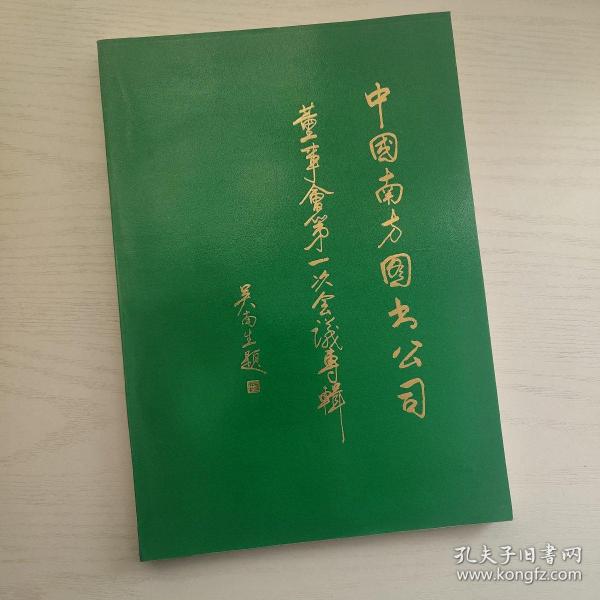 中國南方图书公司
董事會第一次会議專輯
吴南生題
孔夫子旧書网
www.kongfz.com